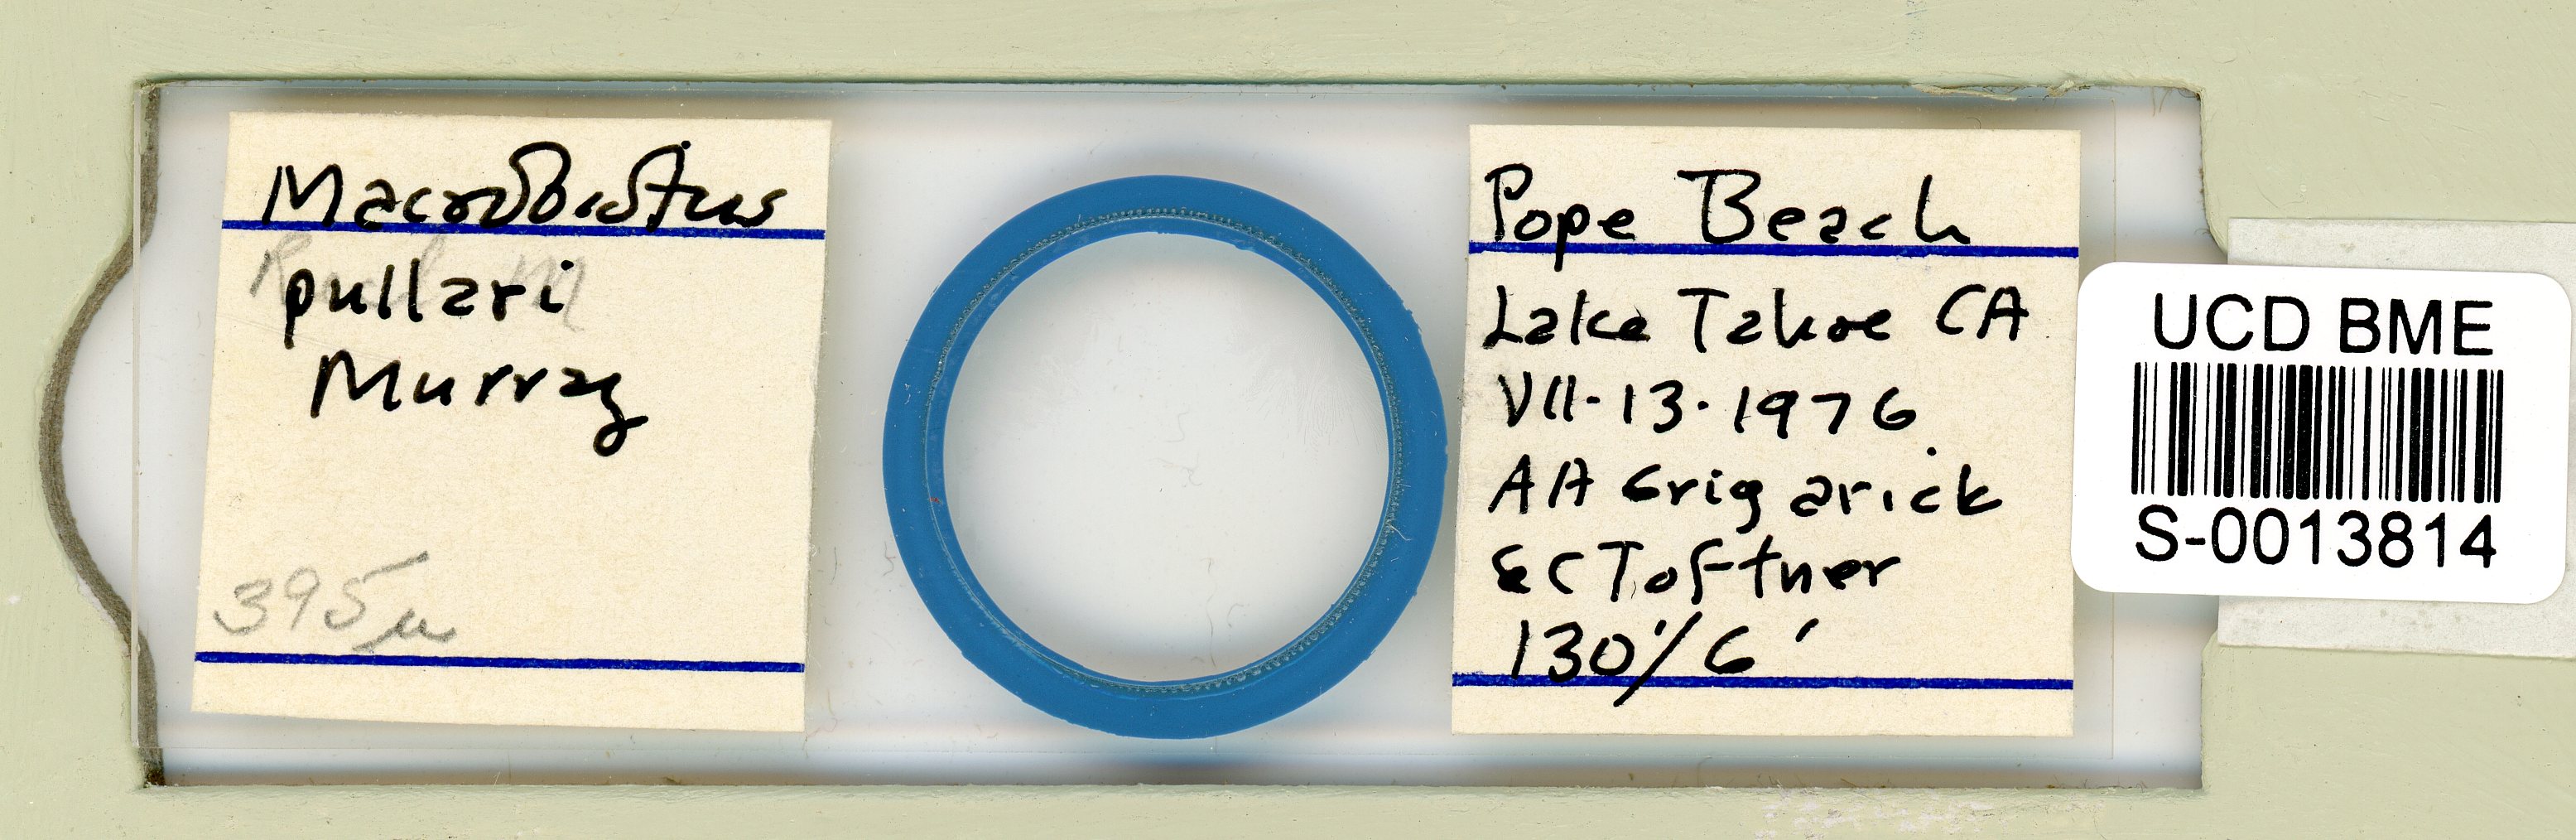 Macrobiotus
pullari
Murray
395µ
Pope Beach
Lake Tahoe CA
VII-13-1976
AA Grigarick
& C Toftner
130'/6'
UCD BME
S-0013814